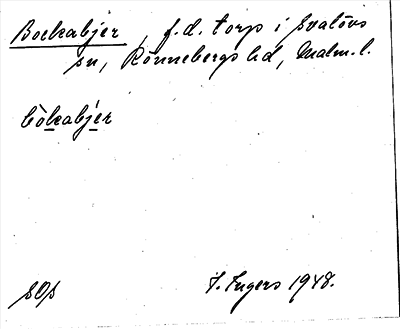 Bockabjer, f.d. torp i Svalövs
sn, Rönnebergs hd, Malm. l.
bòkabjér
SOs
I. Ingers 1948.